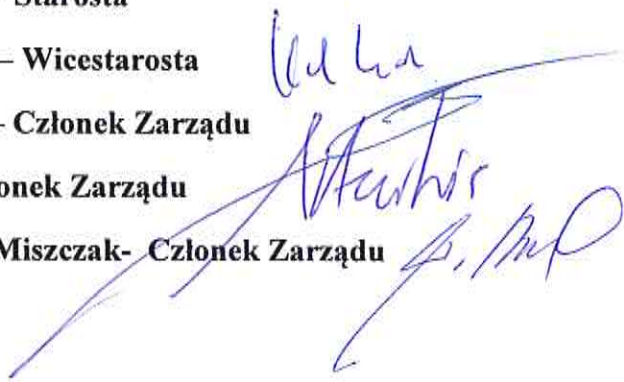 Starosta
– Wicestarosta
- Członek Zarządu
onek Zarządu
Miszczak- Członek Zarządu